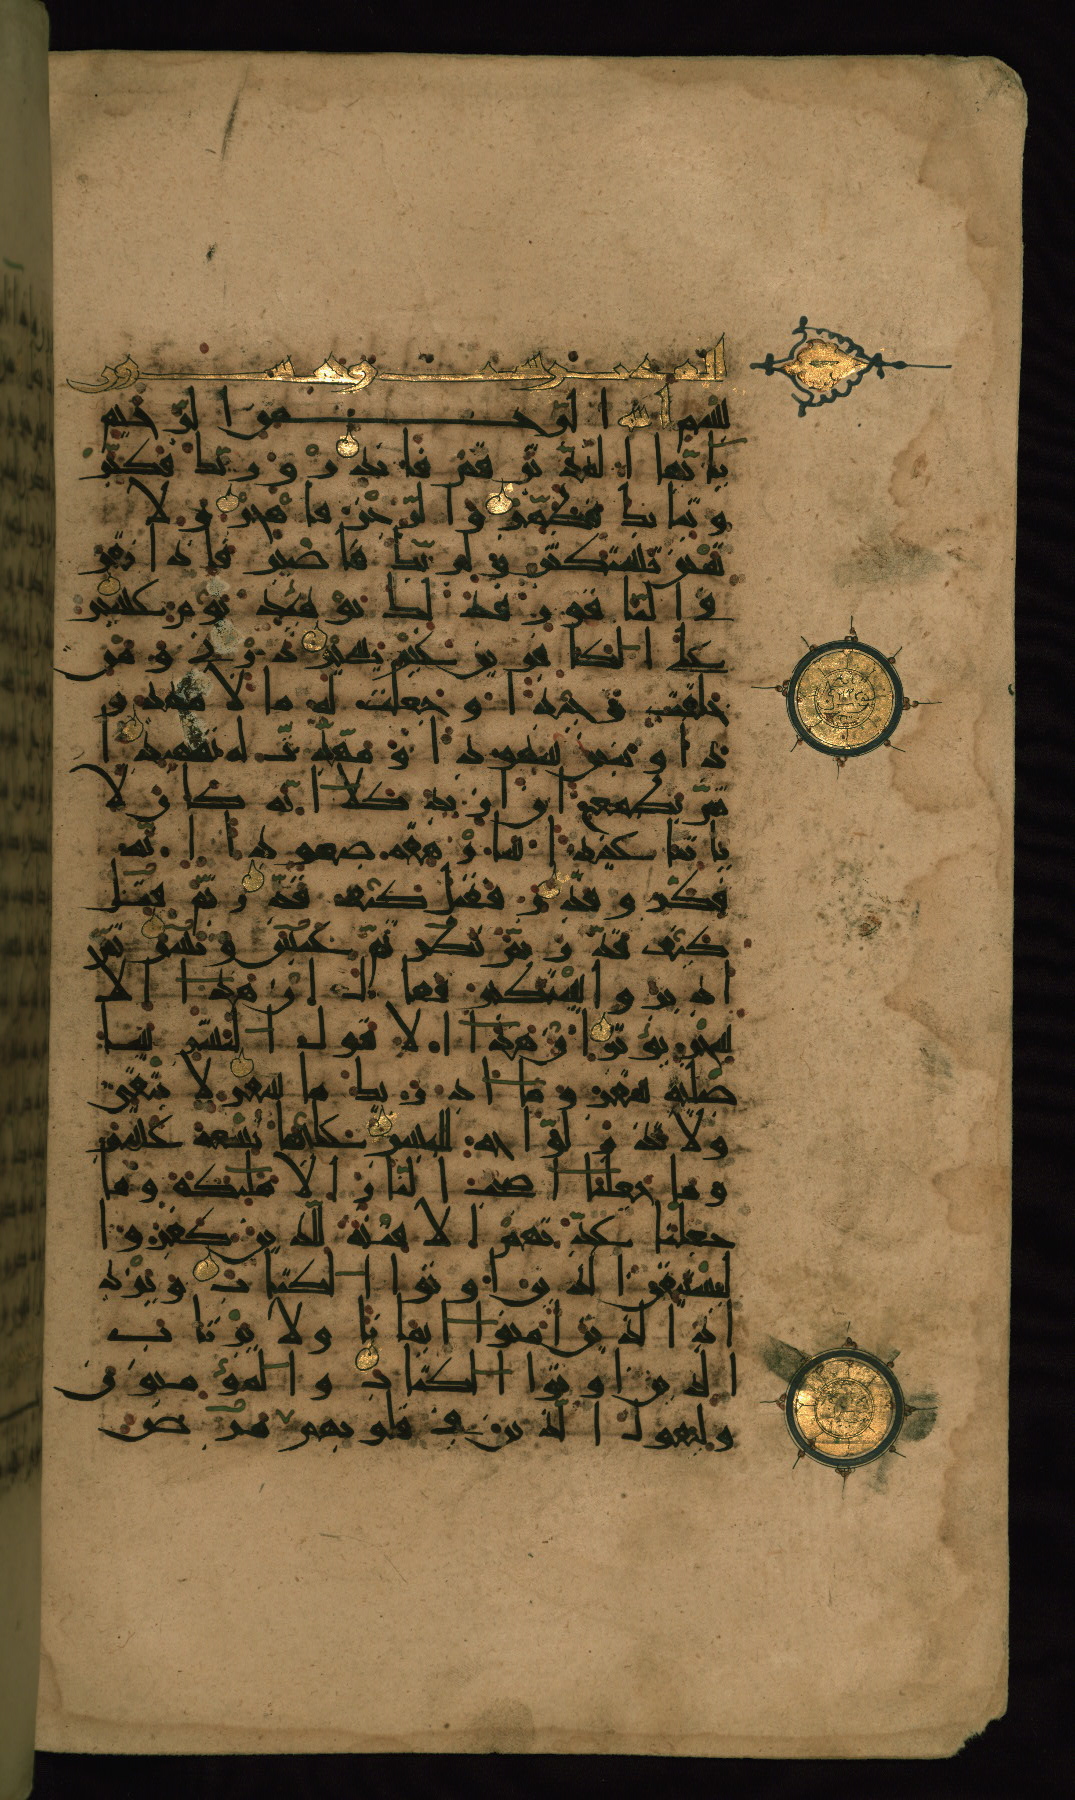 المدثر ست وخمسون
بسم الله الرحمن الرحيم
يا ايها المدثر قم فانذر وربك فكبر
وثيابك فطهر والرجز فاهجر ولا
تمنن تستكثر ولربك فاصبر فاذا نقر
في الناقور فذلك يومئذ يوم عسير
على الكافرين غير يسير ذرني ومن
خلقت وحيدا وجعلت له مالا ممدو
دا وبنين شهودا ومهدت له تمهيدا
ثم يطمع ان ازيد كلا انه كان لا
ياتنا عنيدا سارهقه صعودا انه
فكر وقدر فقتل كيف قدر ثم قتل
كيف قدر ثم نظر ثم عبس وبسر ثم
ادبر واستكبر فقال ان هذا الا
سحر يؤثر ان هذا الا قول البشر سا
صليه سقر وما ادريك ما سقر لا تبقي
ولا تذر لواحة للبشر عليها تسعة عشر
وما جعلنا اصحب النار الا ملئكة وما
جعلنا عدتهم الا فتنة للذين كفروا
ليستيقن الذين اوتوا الكتاب ويزد
اد الذين امنوا ايمانا ولا يرتاب
الذين اوتوا الكتاب والمؤمنون
وليقول الذين في قلوبهم مرض